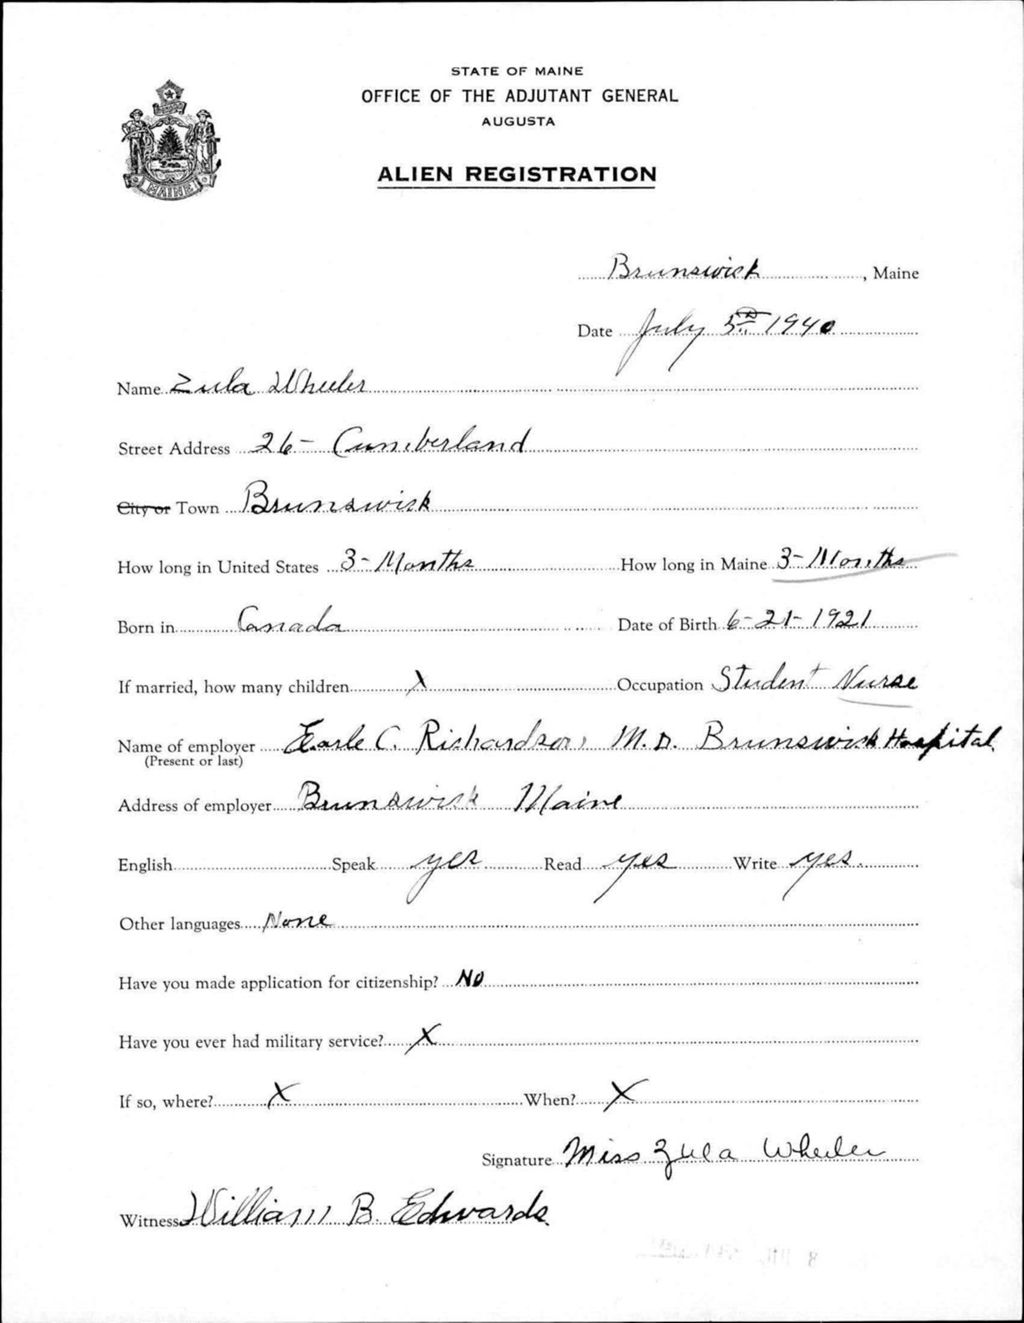 STATE OF MAINE
OFFICE OF THE ADJUTANT GENERAL
AUGUSTA
ALIEN REGISTRATION
MAINE
Brunswick, Maine
Date July 5th 1940
Name Zula Wheeler
Street Address 26 - Cumberland
City or Town Brunswick
How long in United States 3 - Months How long in Maine 3 - Months
Born in Canada Date of Birth 6-21-1921
If married, how many children X Occupation Student Nurse
Name of employer Earle C. Richardson, M.D. Brunswick Hospital
(Present or last)
Address of employer Brunswick Maine
English Speak yes Read yes Write yes.
Other languages None
Have you made application for citizenship? No
Have you ever had military service? X
If so, where? X When? X
Signature Miss Zula Wheeler
Witness William B. Edwards